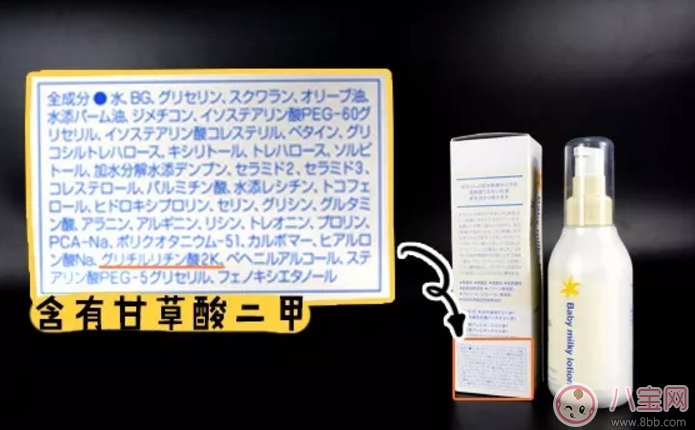 全成分●水、BG、グリセリン、スクワラン、オリーブ油、
水添パーム油、ジメチコン、イソステアリン酸PEG-60グ
リセリル、イソステアリン酸コレステリル、ベタイン、グリ
コシルトレハロース、キシリトール、トレハロース、ソルビ
トール、加水分解水添デンプン、セラミド2、セラミド3、
コレステロール、パルミチン酸、水添レシチン、トコフェ
ロール、ヒドロキシプロリン、セリン、グリシン、グルタミ
ン酸、アラニン、アルギニン、リシン、トレオニン、プロリン、
PCA-Na、ポリクオタニウム-51、カルボマー、ヒアルロ
ン酸Na、グリチルリチン酸2K、ベヘニルアルコール、ステ
アリン酸PEG-5グリセリル、フェノキシエタノール
含有甘草酸二甲
Baby milky lotion
八宝网
www.8bb.com